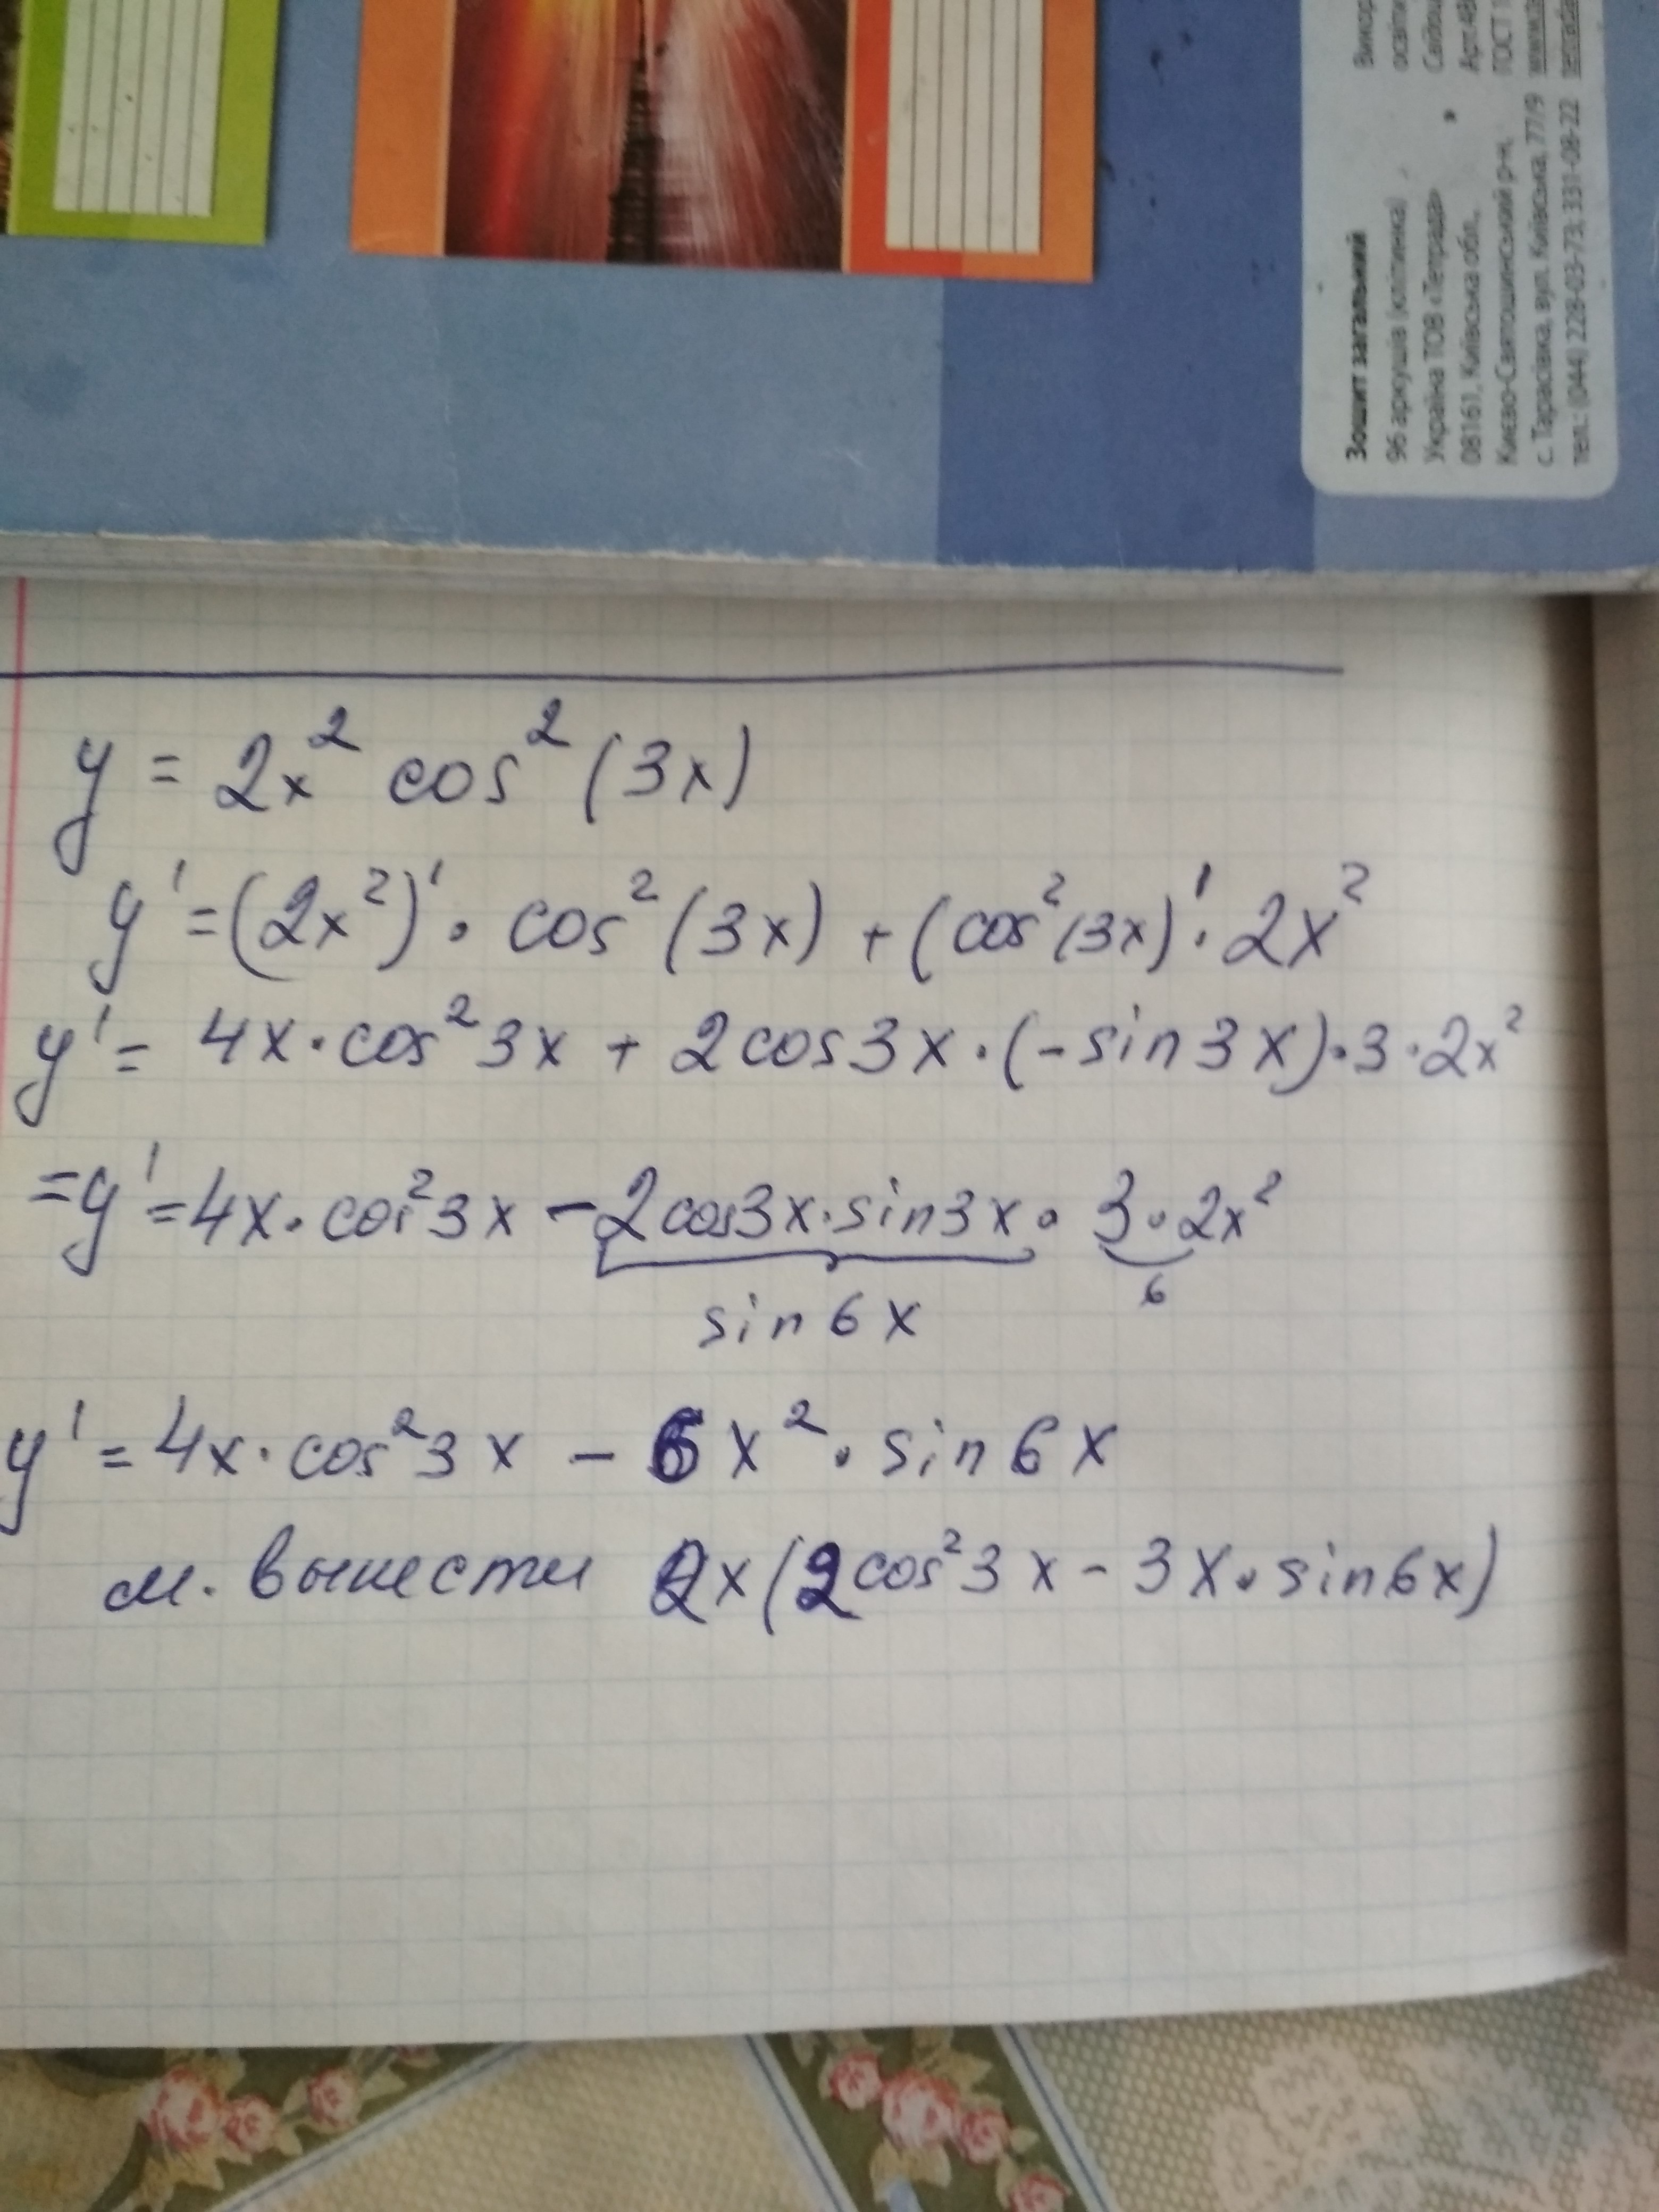 Зошит загальний
96 аркушів (клітинка)
Україна ТОВ «Тетрада»
08161, Київська обл.,
Києво-Святошинський р-н,
с. Тарасівка, вул. Київська, 77/9
тел.: (044) 228-03-73; 331-08-22
y = 2x² cos² (3x)
y' = (2x²)' · cos² (3x) + (cos² (3x)' · 2x²
y' = 4x · cos² 3x + 2cos3x · (-sin3x) · 3 · 2x²
= y' = 4x · cos² 3x - 2cos3x · sin3x · 3 · 2x²
sin6x 6
y' = 4x · cos² 3x - 6x² · sin6x
м. вынести 2x(2cos² 3x - 3x · sin6x)